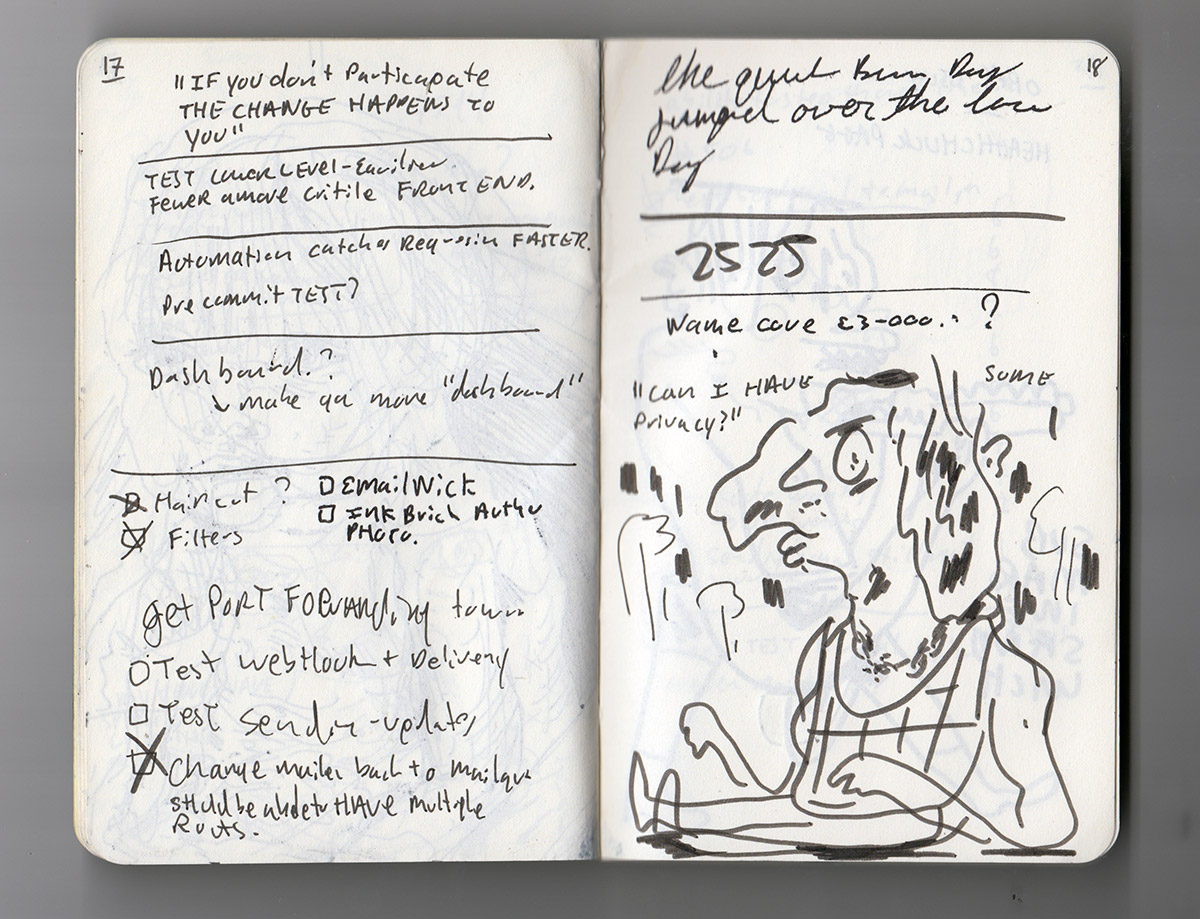 17
"IF you don't Particapate
THE CHANGE HAPPENS TO
YOU"
TEST Lower LEVEL-
Fewer FRONT END.
Automation catches FASTER.
Pre commit TEST?
Dashboard.?
make "dashboard"
Haircut ?
Filters
EMail Nick
INK Brick Author
PHoto.
get PORT FORWARDING
Test webHook + Delivery
Test Sendin-updates
Change mailer back to mailgun
should be able to HAVE multiple
Routs.
18
The
jumped over the
2525
Name £3-000.: ?
"Can I HAVE SOME
Privacy?"